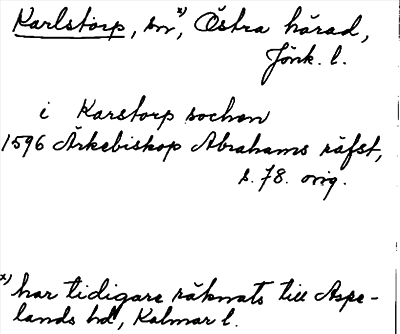 Karlstorp, sn x), Östra härad,
Jönk. l.
i Karstorp sochen
1596 Ärkebiskop Abrahams räfst,
s. 78. orig.
x) har tidigare räknats till Aspe-
lands hd, Kalmar l.